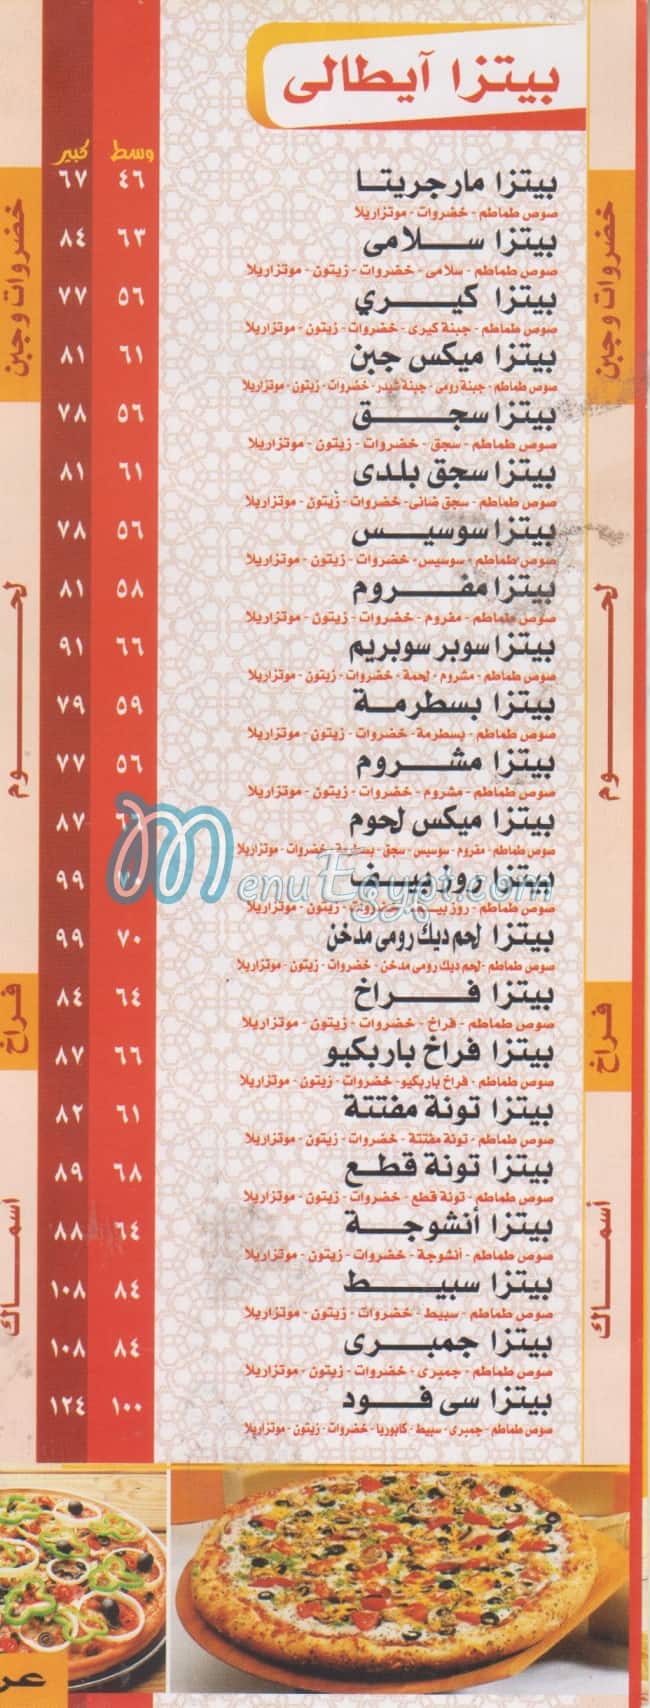 بيتزا آيطالى
وسط كبير
خضروات وجبن
بيتزا مارجريتا ٤٦ ٦٧
صوص طماطم - خضروات - موتزاريلا
بيتزا سلامى ٦٣ ٨٤
صوص طماطم - سلامى - خضروات - زيتون - موتزاريلا
بيتزا كيري ٥٦ ٧٧
صوص طماطم - جبنة كيرى - خضروات - زيتون - موتزاريلا
بيتزا ميكس جبن ٦١ ٨١
صوص طماطم - جبنة رومى - جبنة شيدر - خضروات - زيتون - موتزاريلا
لحوم
بيتزا سجق ٥٦ ٧٨
صوص طماطم - سجق - خضروات - زيتون - موتزاريلا
بيتزا سجق بلدى ٦١ ٨١
صوص طماطم - سجق ضانى - خضروات - زيتون - موتزاريلا
بيتزا سوسيس ٥٦ ٧٨
صوص طماطم - سوسيس - خضروات - زيتون - موتزاريلا
بيتزا مفروم ٥٨ ٨١
صوص طماطم - مفروم - خضروات - زيتون - موتزاريلا
بيتزا سوبر سوبريم ٦٦ ٩١
صوص طماطم - مشروم - لحمة - خضروات - زيتون - موتزاريلا
بيتزا بسطرمة ٥٩ ٧٩
صوص طماطم - بسطرمة - خضروات - زيتون - موتزاريلا
بيتزا مشروم ٥٦ ٧٧
صوص طماطم - مشروم - خضروات - زيتون - موتزاريلا
بيتزا ميكس لحوم ٨٧
صوص طماطم - مفروم - سوسيس - سجق - بسطرمة - خضروات - موتزاريلا
MenuEgypt.com
بيتزا روزبيف ٧٠ ٩٩
صوص طماطم - روزبيف - خضروات - زيتون - موتزاريلا
بيتزا لحم ديك رومى مدخن ٧٠ ٩٩
صوص طماطم - لحم ديك رومى مدخن - خضروات - زيتون - موتزاريلا
فراخ
بيتزا فراخ ٦٤ ٨٤
صوص طماطم - فراخ - خضروات - زيتون - موتزاريلا
بيتزا فراخ باربكيو ٦٦ ٨٧
صوص طماطم - فراخ باربكيو - خضروات - زيتون - موتزاريلا
أسماك
بيتزا تونة مفتتة ٦١ ٨٢
صوص طماطم - تونة مفتتة - خضروات - زيتون - موتزاريلا
بيتزا تونة قطع ٦٨ ٨٩
صوص طماطم - تونة قطع - خضروات - زيتون - موتزاريلا
بيتزا أنشوجة ٦٤ ٨٨
صوص طماطم - أنشوجة - خضروات - زيتون - موتزاريلا
بيتزا سبيط ٨٤ ١٠٨
صوص طماطم - سبيط - خضروات - زيتون - موتزاريلا
بيتزا جمبرى ٨٤ ١٠٨
صوص طماطم - جمبرى - خضروات - زيتون - موتزاريلا
بيتزا سى فود ١٠٠ ١٢٤
صوص طماطم - جمبرى - سبيط - كابوريا - خضروات - زيتون - موتزاريلا
خضروات وجبن
لحوم
فراخ
أسماك